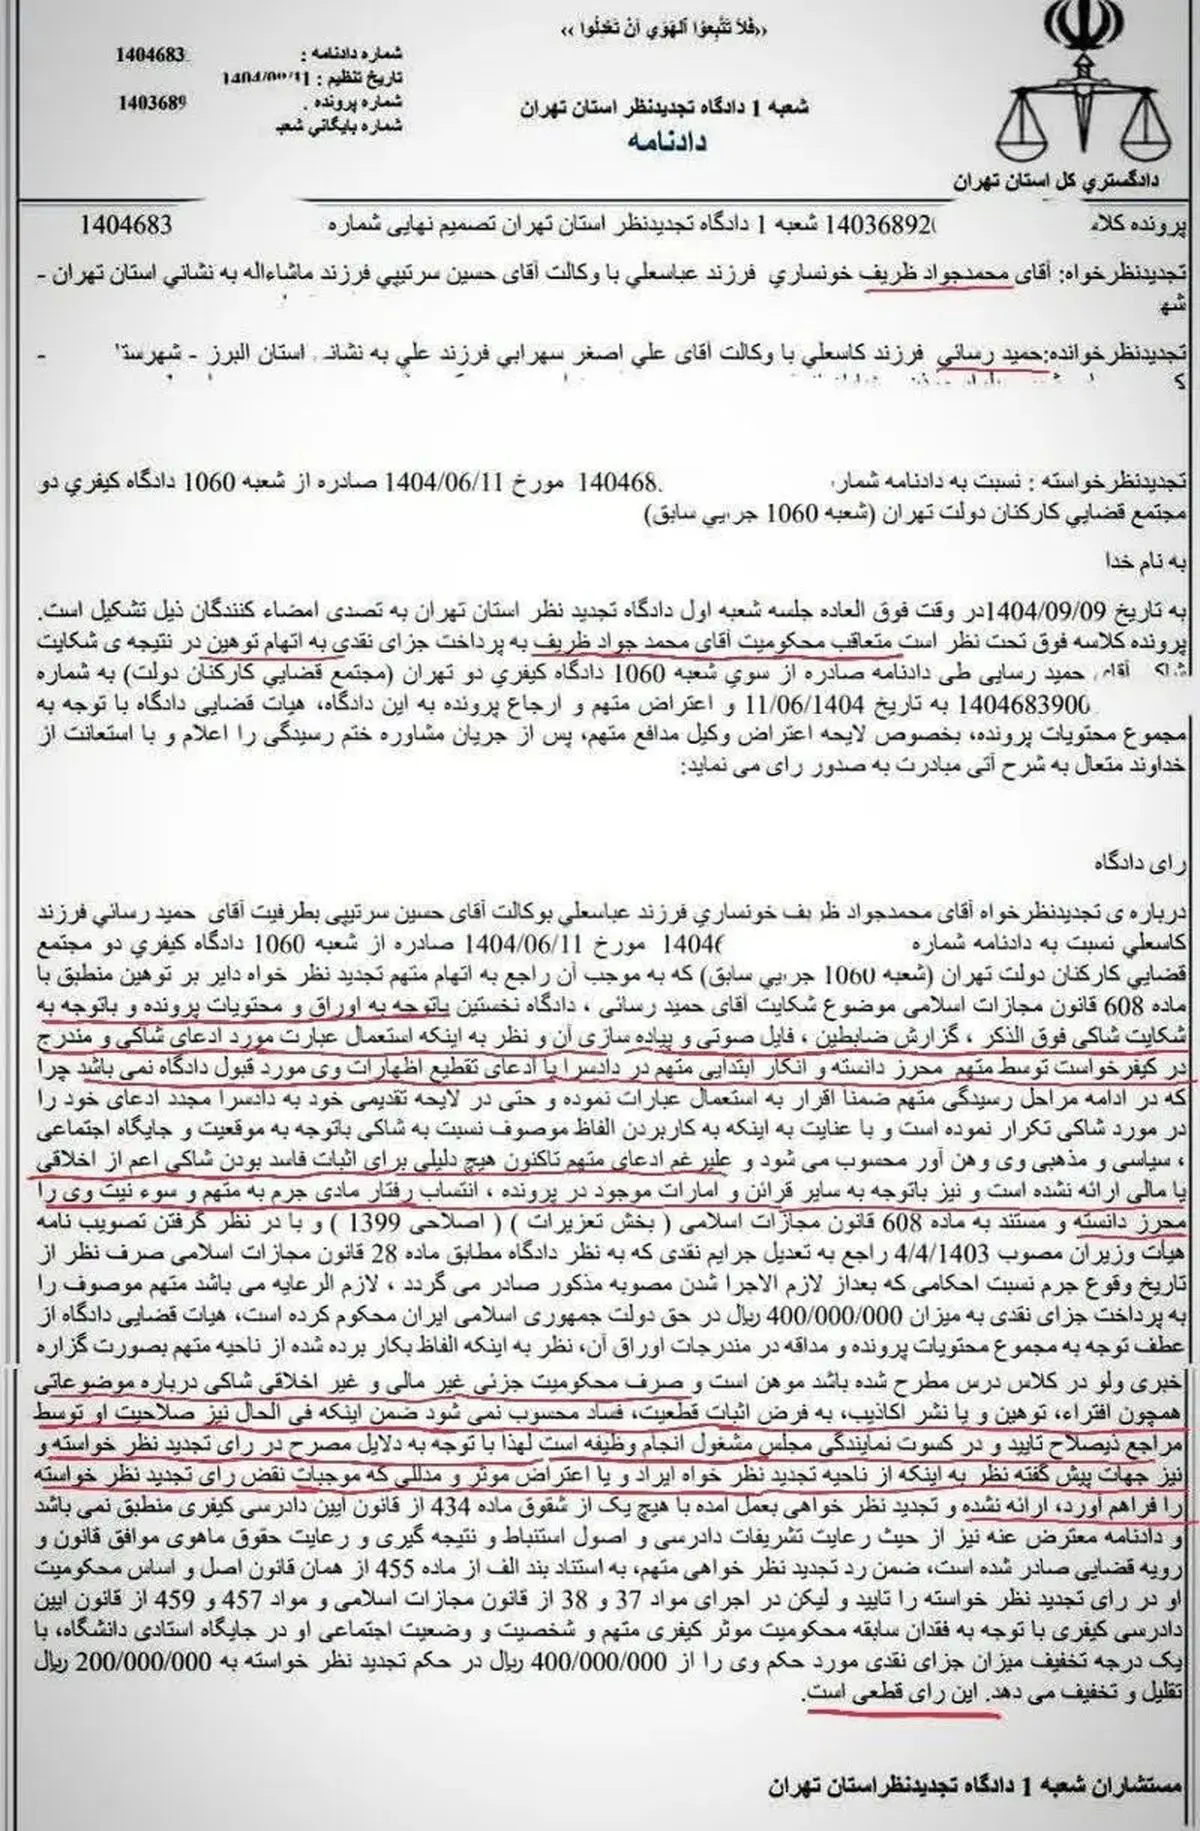 «فَلاَ تَتَّبِعُوا الْهَوَي أَنْ تَعْدِلُوا»
شماره دادنامه : 1404683
تاریخ تنظیم :
شماره پرونده . 1403689
شماره بایگانی شعبه
شعبه 1 دادگاه تجدیدنظر استان تهران
دادنامه
دادگستري کل استان تهران
پرونده کلاسه 14036892 شعبه 1 دادگاه تجدیدنظر استان تهران تصمیم نهایی شماره 1404683
تجدیدنظرخواه: آقای محمدجواد ظریف خونساري فرزند عباسعلي با وکالت آقای حسین سرتیپي فرزند ماشاءاله به نشاني استان تهران -
شه
تجدیدنظرخوانده:حمید رسائي فرزند کاسعلي با وکالت آقای علي اصغر سهرابي فرزند علي به نشانی استان البرز - شهرستا -
تجدیدنظرخواسته : نسبت به دادنامه شماره 140468. مورخ 1404/06/11 صادره از شعبه 1060 دادگاه کیفري دو
مجتمع قضایي کارکنان دولت تهران (شعبه 1060 جزایي سابق)
به نام خدا
به تاریخ 1404/09/09در وقت فوق العاده جلسه شعبه اول دادگاه تجدید نظر استان تهران به تصدی امضاء کنندگان ذیل تشکیل است.
پرونده کلاسه فوق تحت نظر است متعاقب محکومیت آقای محمد جواد ظریف به پرداخت جزای نقدی به اتهام توهین در نتیجه ی شکایت
شاکی آقای حمید رسایی طی دادنامه صادره از سوي شعبه 1060 دادگاه کیفري دو تهران (مجتمع قضایي کارکنان دولت) به شماره
1404683900 به تاریخ 11/06/1404 و اعتراض متهم و ارجاع پرونده به این دادگاه، هیات قضایی دادگاه با توجه به
مجموع محتویات پرونده، بخصوص لایحه اعتراض وکیل مدافع متهم، پس از جریان مشاوره ختم رسیدگی را اعلام و با استعانت از
خداوند متعال به شرح آتی مبادرت به صدور رای می نماید:
رای دادگاه
درباره ی تجدیدنظرخواه آقای محمدجواد ظریف خونساري فرزند عباسعلي بوکالت آقای حسین سرتیپی بطرفیت آقای حمید رسائي فرزند
کاسعلي نسبت به دادنامه شماره 1404 مورخ 1404/06/11 صادره از شعبه 1060 دادگاه کیفري دو مجتمع
قضایي کارکنان دولت تهران (شعبه 1060 جزایي سابق) که به موجب آن راجع به اتهام متهم تجدید نظر خواه دایر بر توهین منطبق با
ماده 608 قانون مجازات اسلامی موضوع شکایت آقای حمید رسائی ، دادگاه نخستین باتوجه به اوراق و محتویات پرونده و باتوجه به
شکایت شاکی فوق الذکر ، گزارش ضابطین ، فایل صوتی و پیاده سازی آن و نظر به اینکه استعمال عبارت مورد ادعای شاکی و مندرج
در کیفرخواست توسط متهم محرز دانسته و انکار ابتدایی متهم در دادسرا یا ادعای تقطیع اظهارات وی مورد قبول دادگاه نمی باشد چرا
که در ادامه مراحل رسیدگی متهم ضمنا اقرار به استعمال عبارات نموده و حتی در لایحه تقدیمی خود به دادسرا مجدد ادعای خود را
در مورد شاکی تکرار نموده است و با عنایت به اینکه به کاربردن الفاظ موصوف نسبت به شاکی باتوجه به موقعیت و جایگاه اجتماعی
، سیاسی و مذهبی وی وهن آور محسوب می شود و علیرغم ادعای متهم تاکنون هیچ دلیلی برای اثبات فاسد بودن شاکی اعم از اخلاقی
یا مالی ارائه نشده است و نیز باتوجه به سایر قرائن و امارات موجود در پرونده ، انتساب رفتار مادی جرم به متهم و سوء نیت وی را
محرز دانسته و مستند به ماده 608 قانون مجازات اسلامی ( بخش تعزیرات ) ( اصلاحی 1399 ) و با در نظر گرفتن تصویب نامه
هیات وزیران مصوب 4/4/1403 راجع به تعدیل جرایم نقدی که به نظر دادگاه مطابق ماده 28 قانون مجازات اسلامی صرف نظر از
تاریخ وقوع جرم نسبت احکامی که بعداز لازم الاجرا شدن مصوبه مذکور صادر می گردد ، لازم الرعایه می باشد متهم موصوف را
به پرداخت جزای نقدی به میزان 400/000/000 ریال در حق دولت جمهوری اسلامی ایران محکوم کرده است، هیات قضایی دادگاه از
عطف توجه به مجموع محتویات پرونده و مداقه در مندرجات اوراق آن، نظر به اینکه الفاظ بکار برده شده از ناحیه متهم بصورت گزاره
خبری ولو در کلاس درس مطرح شده باشد موهن است و صرف محکومیت جزئی غیر مالی و غیر اخلاقی شاکی درباره موضوعاتی
همچون افتراء، توهین و یا نشر اکاذیب، به فرض اثبات قطعیت، فساد محسوب نمی شود ضمن اینکه فی الحال نیز صلاحیت او توسط
مراجع ذیصلاح تایید و در کسوت نمایندگی مجلس مشغول انجام وظیفه است لهذا با توجه به دلایل مصرح در رای تجدید نظر خواسته و
نیز جهات پیش گفته نظر به اینکه از ناحیه تجدید نظر خواه ایراد و یا اعتراض موثر و مدللی که موجبات نقض رای تجدید نظر خواسته
را فراهم آورد، ارائه نشده و تجدید نظر خواهی بعمل آمده با هیچ یک از شقوق ماده 434 از قانون آیین دادرسی کیفری منطبق نمی باشد
و دادنامه معترض عنه نیز از حیث رعایت تشریفات دادرسی و اصول استنباط و نتیجه گیری و رعایت حقوق ماهوی موافق قانون و
رویه قضایی صادر شده است، ضمن رد تجدید نظر خواهی متهم، به استناد بند الف از ماده 455 از همان قانون اصل و اساس محکومیت
او در رای تجدید نظر خواسته را تایید و لیکن در اجرای مواد 37 و 38 از قانون مجازات اسلامی و مواد 457 و 459 از قانون آیین
دادرسی کیفری با توجه به فقدان سابقه محکومیت موثر کیفری متهم و شخصیت و وضعیت اجتماعی او در جایگاه استادی دانشگاه، با
یک درجه تخفیف میزان جزای نقدی مورد حکم وی را از 400/000/000 ریال در حکم تجدید نظر خواسته به 200/000/000 ریال
تقلیل و تخفیف می دهد. این رای قطعی است.
مستشاران شعبه 1 دادگاه تجدیدنظراستان تهران